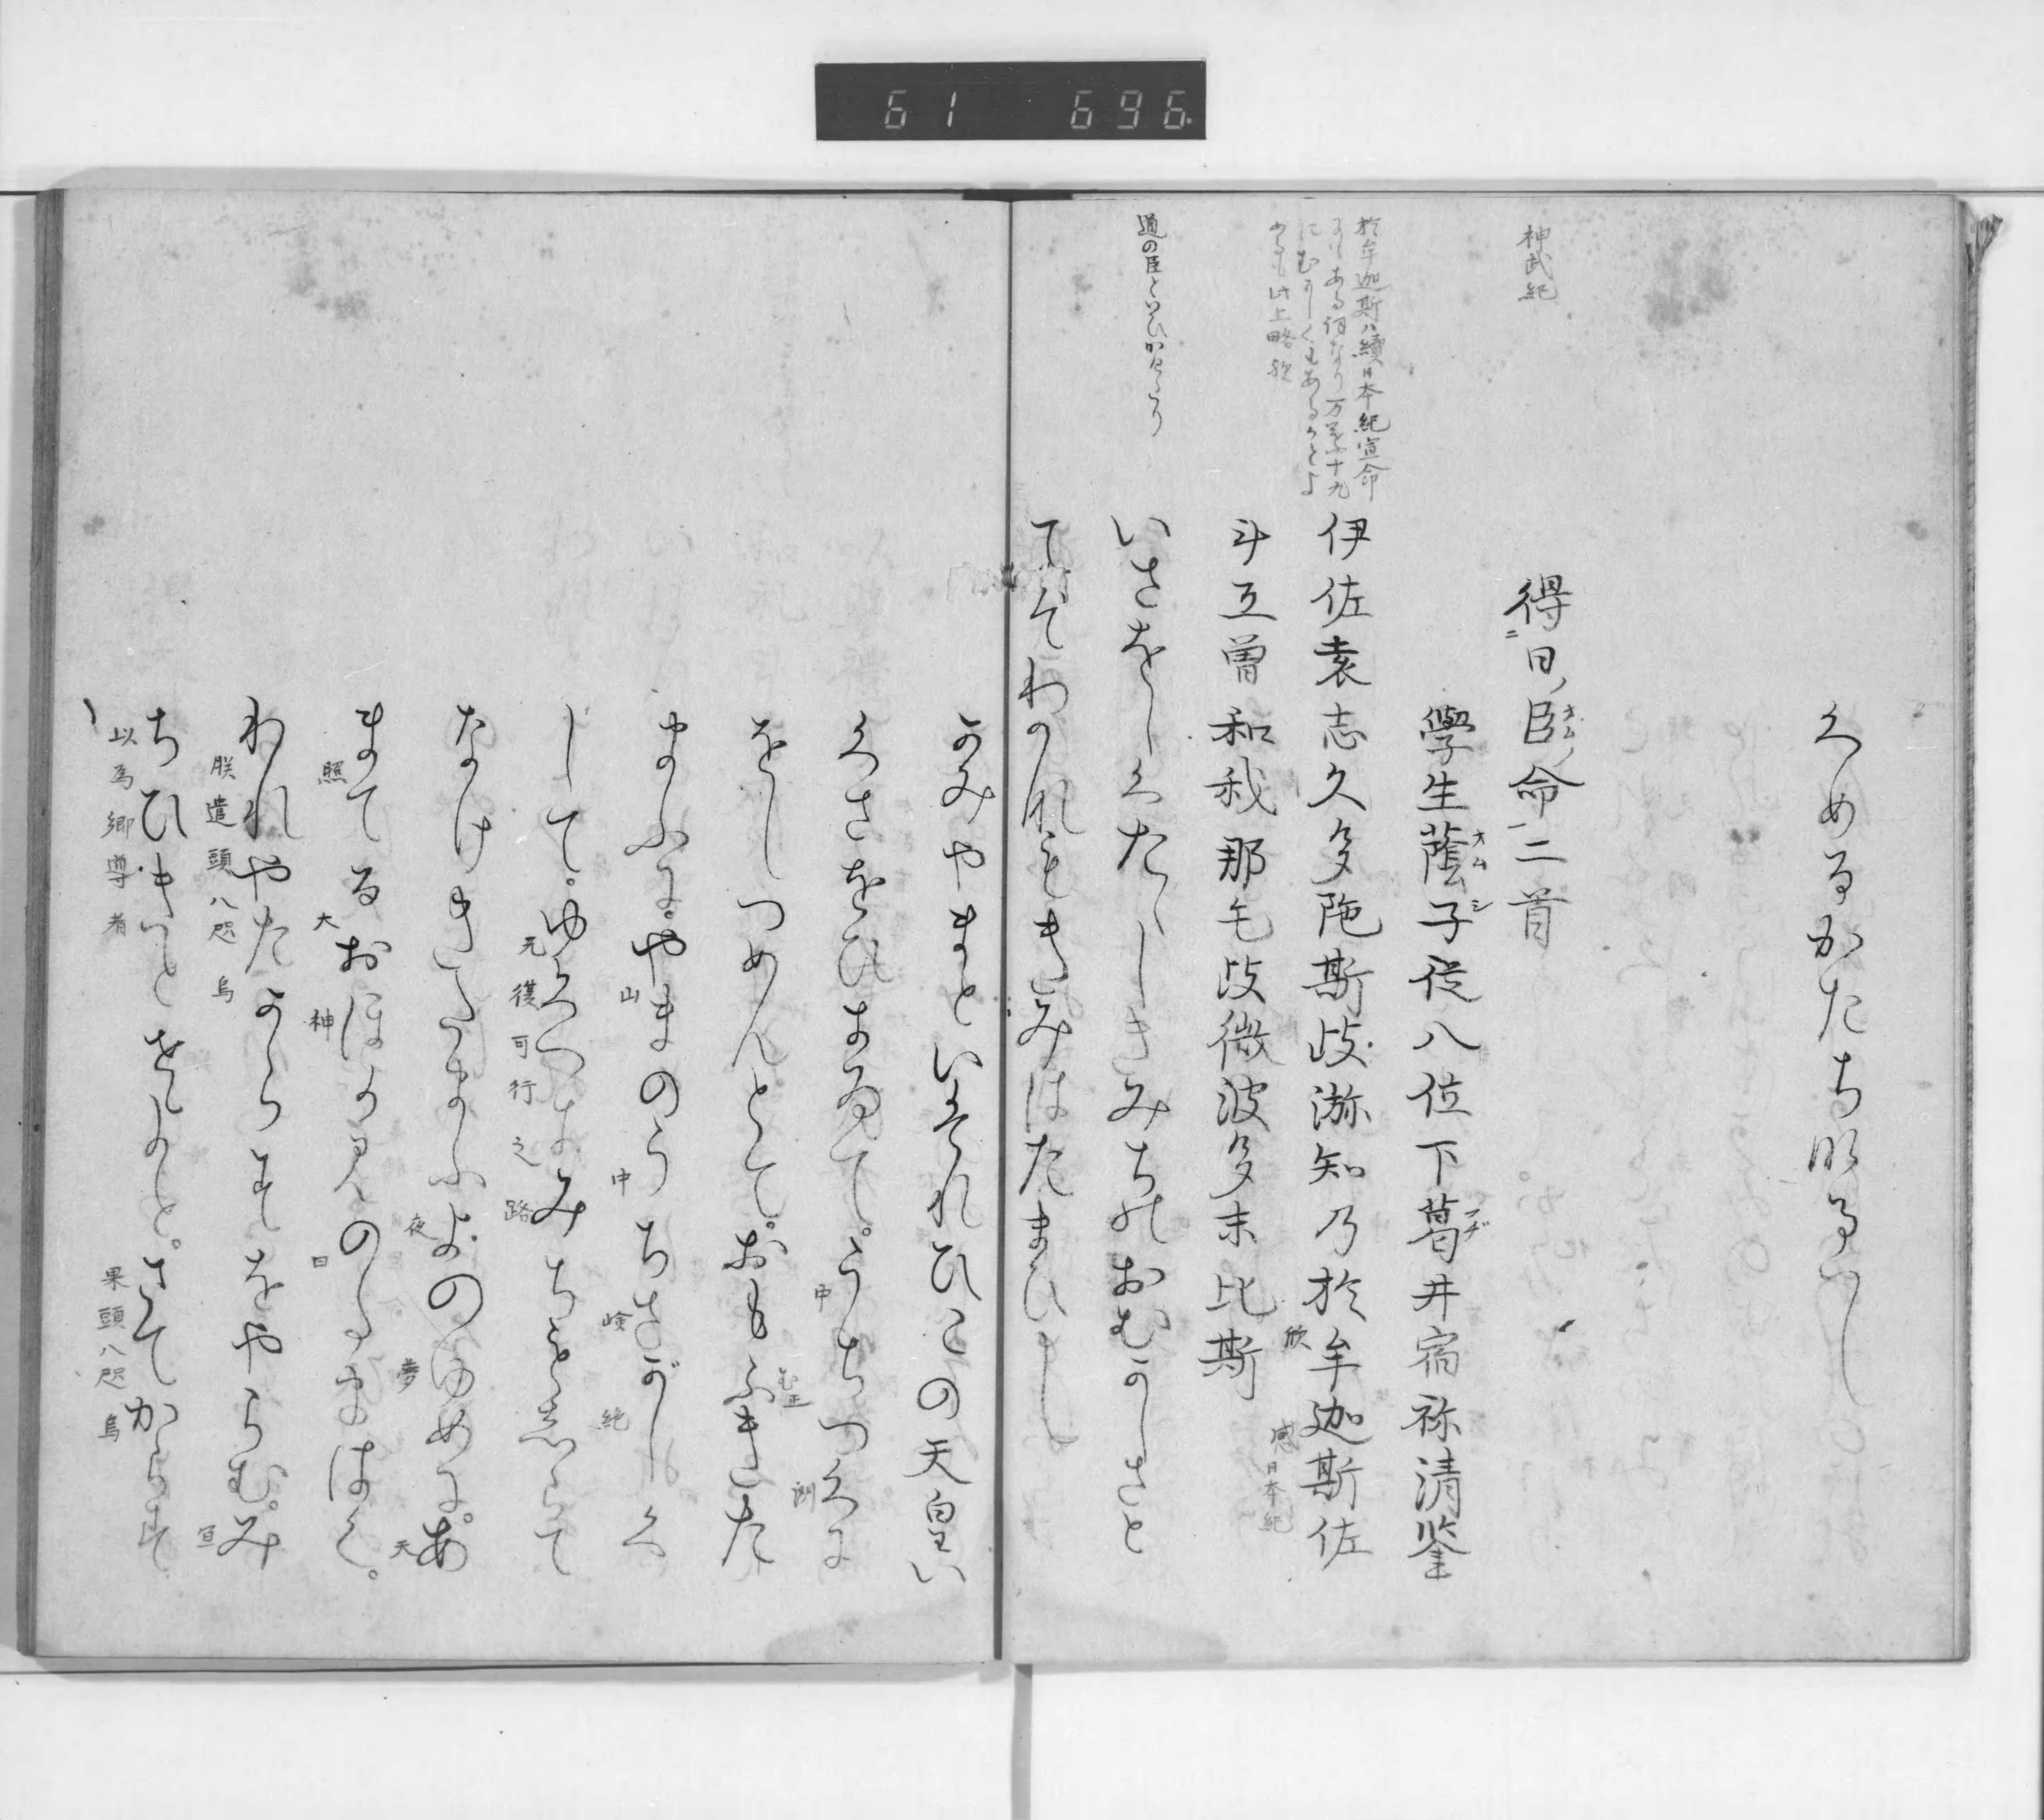 61 696
くめるかたちなるへし
神武紀
得日臣命二首
ニ オムノ
學生蔭子従八位下葛井宿祢清鉴
オムシ フヂ
於牟迦斯ハ續日本紀宣命
にむかしくもあるかとよ
此上略歟
伊佐袁志久多陁斯岐瀰知乃於牟迦斯佐
欣
感日本紀
斗弖曽和我那毛岐微波多末比斯
道の臣と
いさをしくたゝしきみちのおむかしさと
てそわかなもきみはたまひし
かみやまといはれひこの天皇い
くさをひきゐて。うちつくに
中 洲
をしつめんとて。おもふきた
む正
まふに。やまのうちさがしく
山 中 嶮 絶
して。ゆくへきみちもあらて
无復可行之路
なけきたまふよのゆめに。あ
夜 夢 天
まてるおほかみののたまはく。
照 大 神 曰
われやたからすをやらむ。み
朕遣頭八咫烏 宣
ちひきとせよと。さてからす
以為郷導者 果頭八咫烏